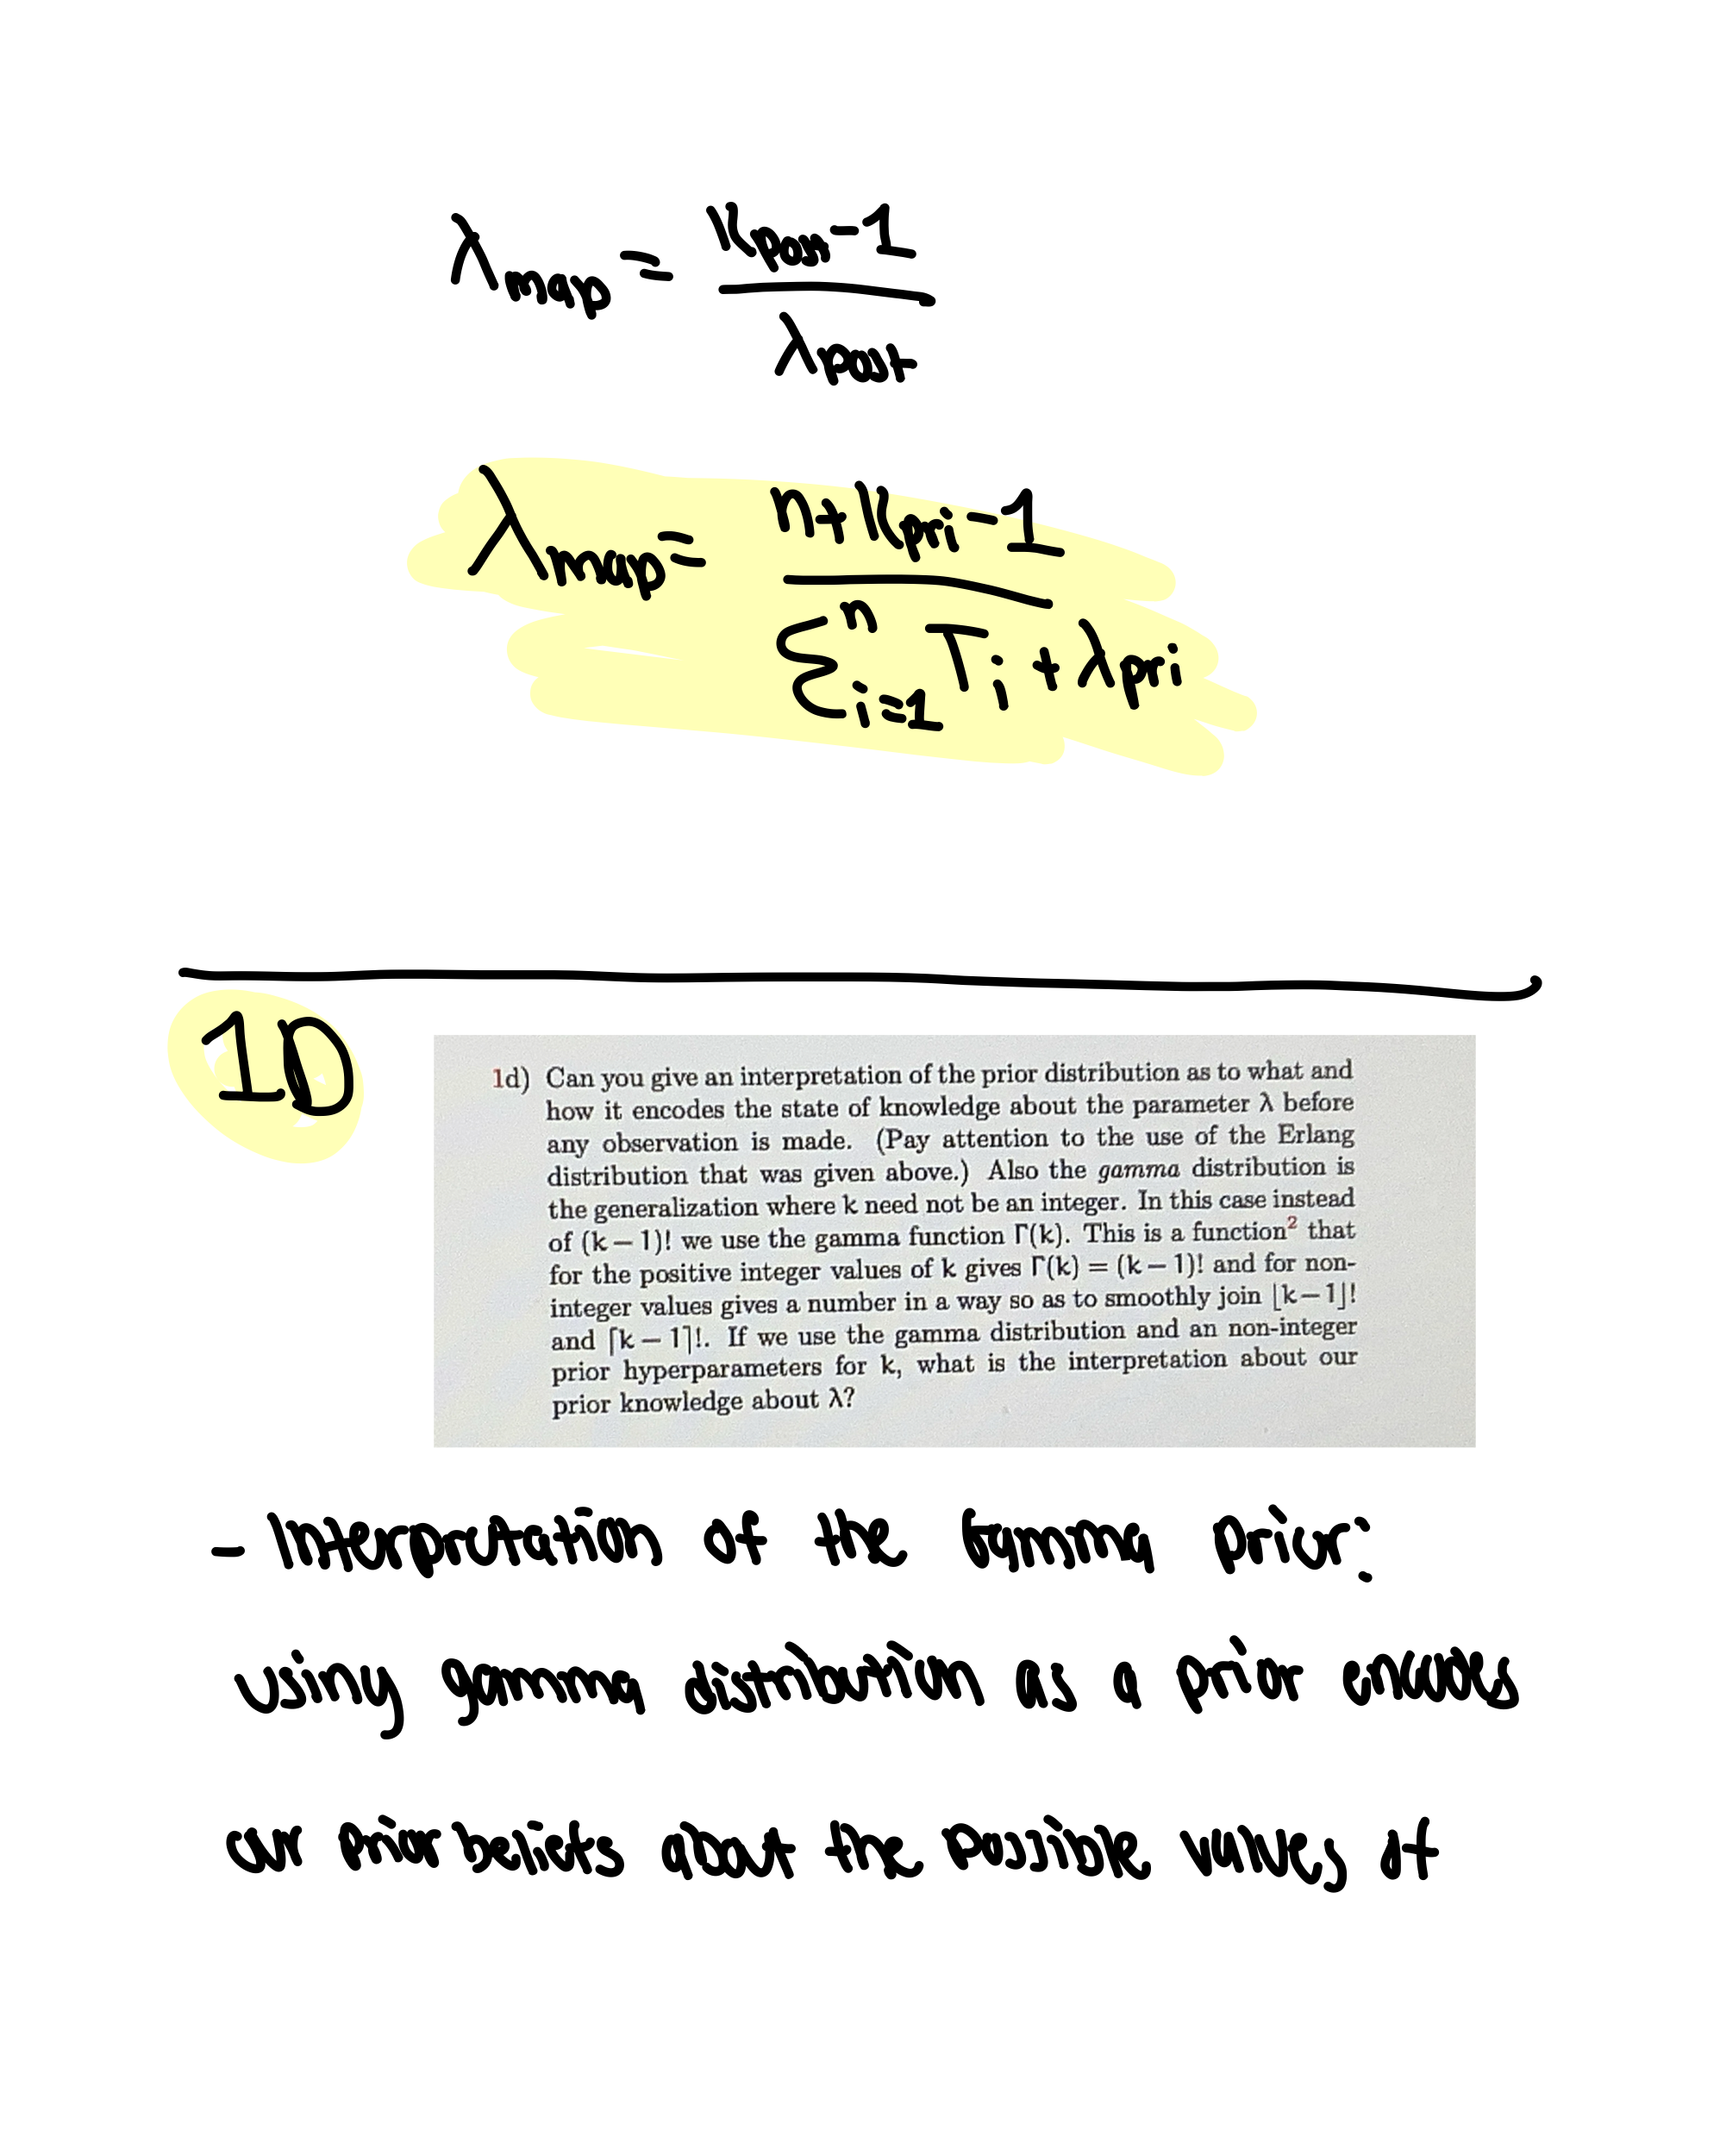 λmap = Kpost-1
λpost
λmap = n+Kpri-1
Σⁿi=1 Ti + λpri
1D
1d) Can you give an interpretation of the prior distribution as to what and
how it encodes the state of knowledge about the parameter λ before
any observation is made. (Pay attention to the use of the Erlang
distribution that was given above.) Also the gamma distribution is
the generalization where k need not be an integer. In this case instead
of (k − 1)! we use the gamma function Γ(k). This is a function² that
for the positive integer values of k gives Γ(k) = (k − 1)! and for non-
integer values gives a number in a way so as to smoothly join ⌊k − 1⌋!
and ⌈k − 1⌉!. If we use the gamma distribution and an non-integer
prior hyperparameters for k, what is the interpretation about our
prior knowledge about λ?
- Interpretation of the Gamma prior:
using gamma distribution as a prior encodes
our prior beliefs about the possible values of